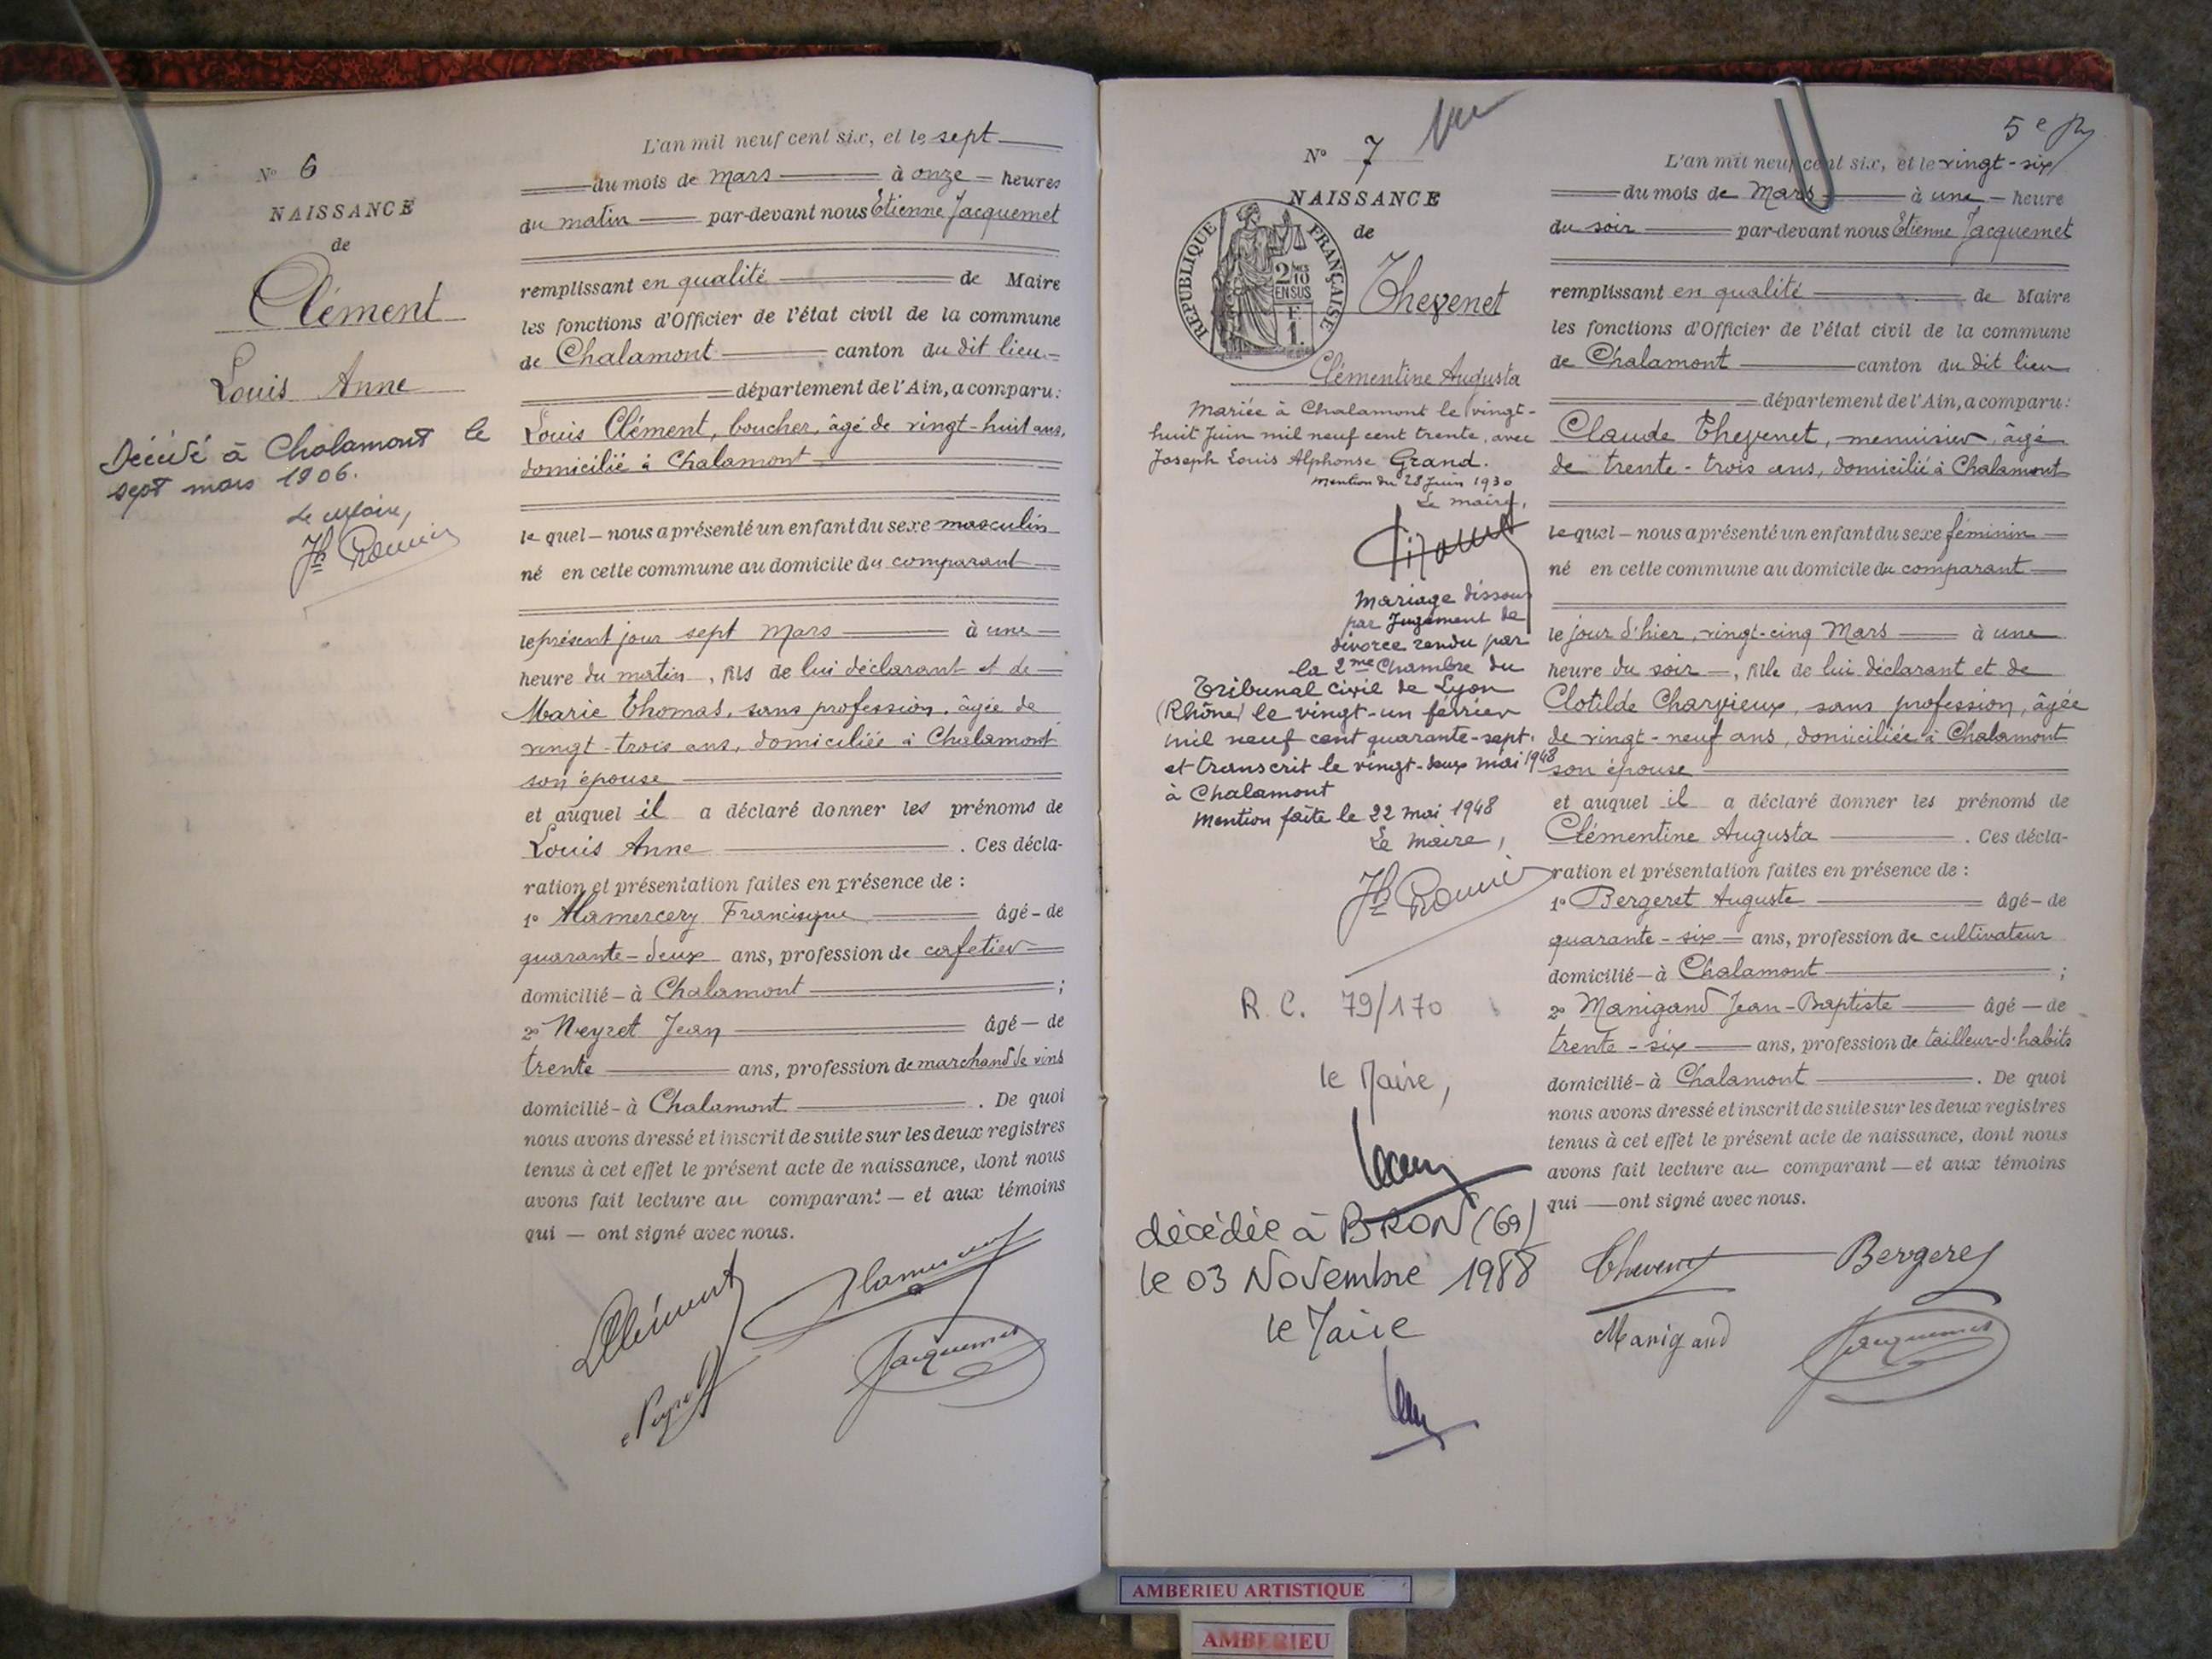 N° 6
NAISSANCE
de
Clément
Louis Anne
Décédé à Chalamont le
sept mars 1906.
Le Maire,
L'an mil neuf cent six, et le sept
du mois de Mars à onze heures
du matin par-devant nous Etienne Jacquemet
remplissant en qualité de Maire
les fonctions d'Officier de l'état civil de la commune
de Chalamont canton du dit lieu
département de l'Ain, a comparu:
Louis Clément, boucher, âgé de vingt-huit ans,
domicilié à Chalamont
lequel nous a présenté un enfant du sexe masculin
né en cette commune au domicile du comparant
le présent jour sept Mars à une
heure du matin, fils de lui déclarant et de
Marie Thomas, sans profession, âgée de
vingt-trois ans, domiciliée à Chalamont
son épouse
et auquel il a déclaré donner les prénoms de
Louis Anne. Ces décla-
ration et présentation faites en présence de :
1° Mamercery Francisque âgé de
quarante-deux ans, profession de cafetier
domicilié à Chalamont ;
2° Neyret Jean âgé de
trente ans, profession de marchand de vins
domicilié à Chalamont. De quoi
nous avons dressé et inscrit de suite sur les deux registres
tenus à cet effet le présent acte de naissance, dont nous
avons fait lecture au comparant et aux témoins
qui ont signé avec nous.
LClément
Jacquemet
N° 7
NAISSANCE
de
RÉPUBLIQUE FRANÇAISE
2/10 EN SUS
F. 1.
Thevenet
Clémentine Augusta
Mariée à Chalamont le vingt-
huit Juin mil neuf cent trente, avec
Joseph Louis Alphonse Grand.
Mention du 28 Juin 1930
Le maire,
Mariage dissous
par Jugement de
divorce rendu par
la 2me Chambre du
Tribunal Civil de Lyon
(Rhône) le vingt-un fevrier
mil neuf cent quarante-sept.
et transcrit le vingt-deux mai 1948
à Chalamont
Mention faite le 22 mai 1948
Le Maire,
R.C. 79/170
le Maire,
décédée à BRON (69)
le 03 Novembre 1988
le Maire
5e
L'an mil neuf cent six, et le vingt-six
du mois de Mars à une heure
du soir par-devant nous Etienne Jacquemet
remplissant en qualité de Maire
les fonctions d'Officier de l'état civil de la commune
de Chalamont canton du dit lieu
département de l'Ain, a comparu:
Claude Thevenet, menuisier, âgé
de trente-trois ans, domicilié à Chalamont
lequel nous a présenté un enfant du sexe féminin
né en cette commune au domicile du comparant
le jour d'hier, vingt-cinq Mars à une
heure du soir, fille de lui déclarant et de
Clotilde Charvieux, sans profession, âgée
de vingt-neuf ans, domiciliée à Chalamont
son épouse
et auquel il a déclaré donner les prénoms de
Clémentine Augusta. Ces décla-
ration et présentation faites en présence de :
1° Bergeret Auguste âgé de
quarante-six ans, profession de cultivateur
domicilié à Chalamont ;
2° Manigand Jean-Baptiste âgé de
trente-six ans, profession de tailleur d'habits
domicilié à Chalamont. De quoi
nous avons dressé et inscrit de suite sur les deux registres
tenus à cet effet le présent acte de naissance, dont nous
avons fait lecture au comparant et aux témoins
qui ont signé avec nous.
Thevenet Bergeret
Manigand Jacquemet
AMBERIEU ARTISTIQUE
AMBERIEU